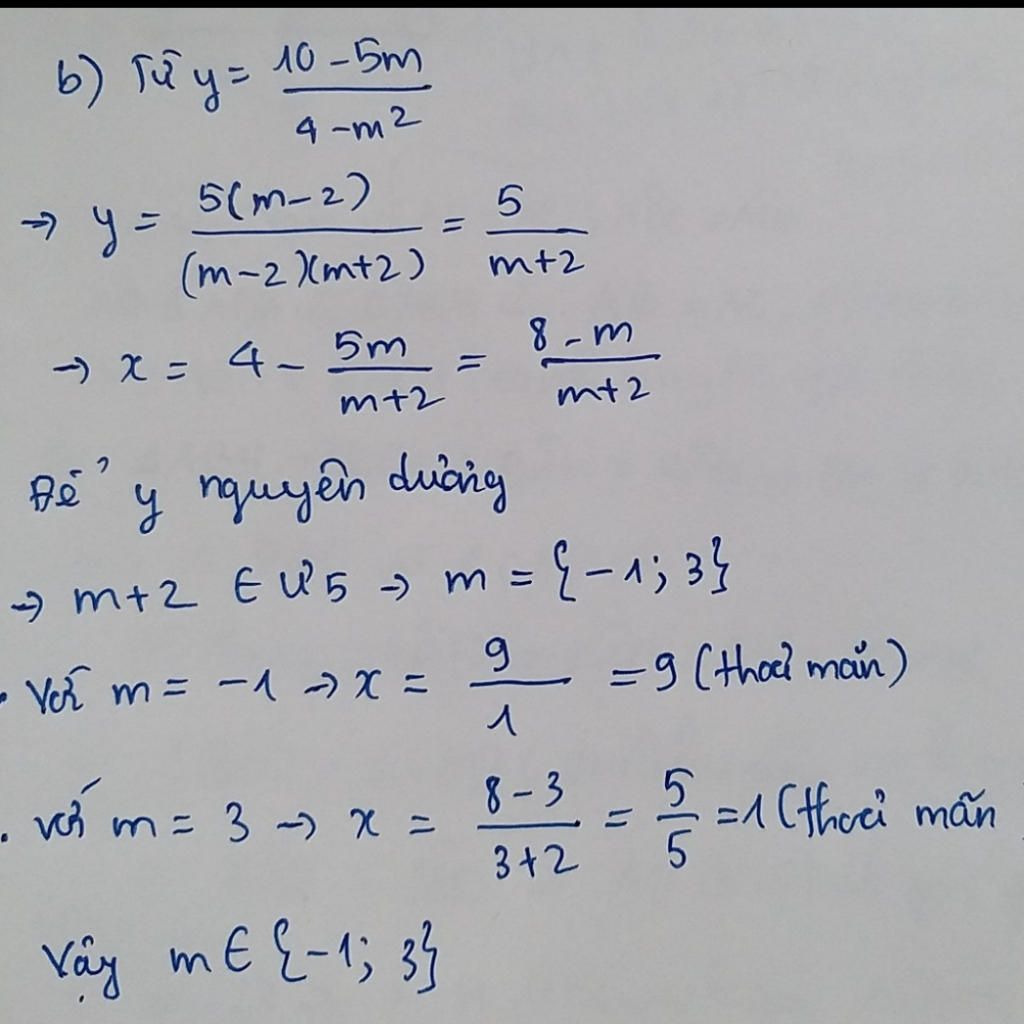 b) Từ y = \frac{10 - 5m}{4 - m^2}
→ y = \frac{5(m-2)}{(m-2)(m+2)} = \frac{5}{m+2}
→ x = 4 - \frac{5m}{m+2} = \frac{8-m}{m+2}
Để y nguyên dương
→ m+2 ∈ Ư5 → m = {-1; 3}
. Với m = -1 → x = \frac{9}{1} = 9 (thoả mãn)
. với m = 3 → x = \frac{8-3}{3+2} = \frac{5}{5} = 1 (thoả mãn
Vậy m ∈ {-1; 3}